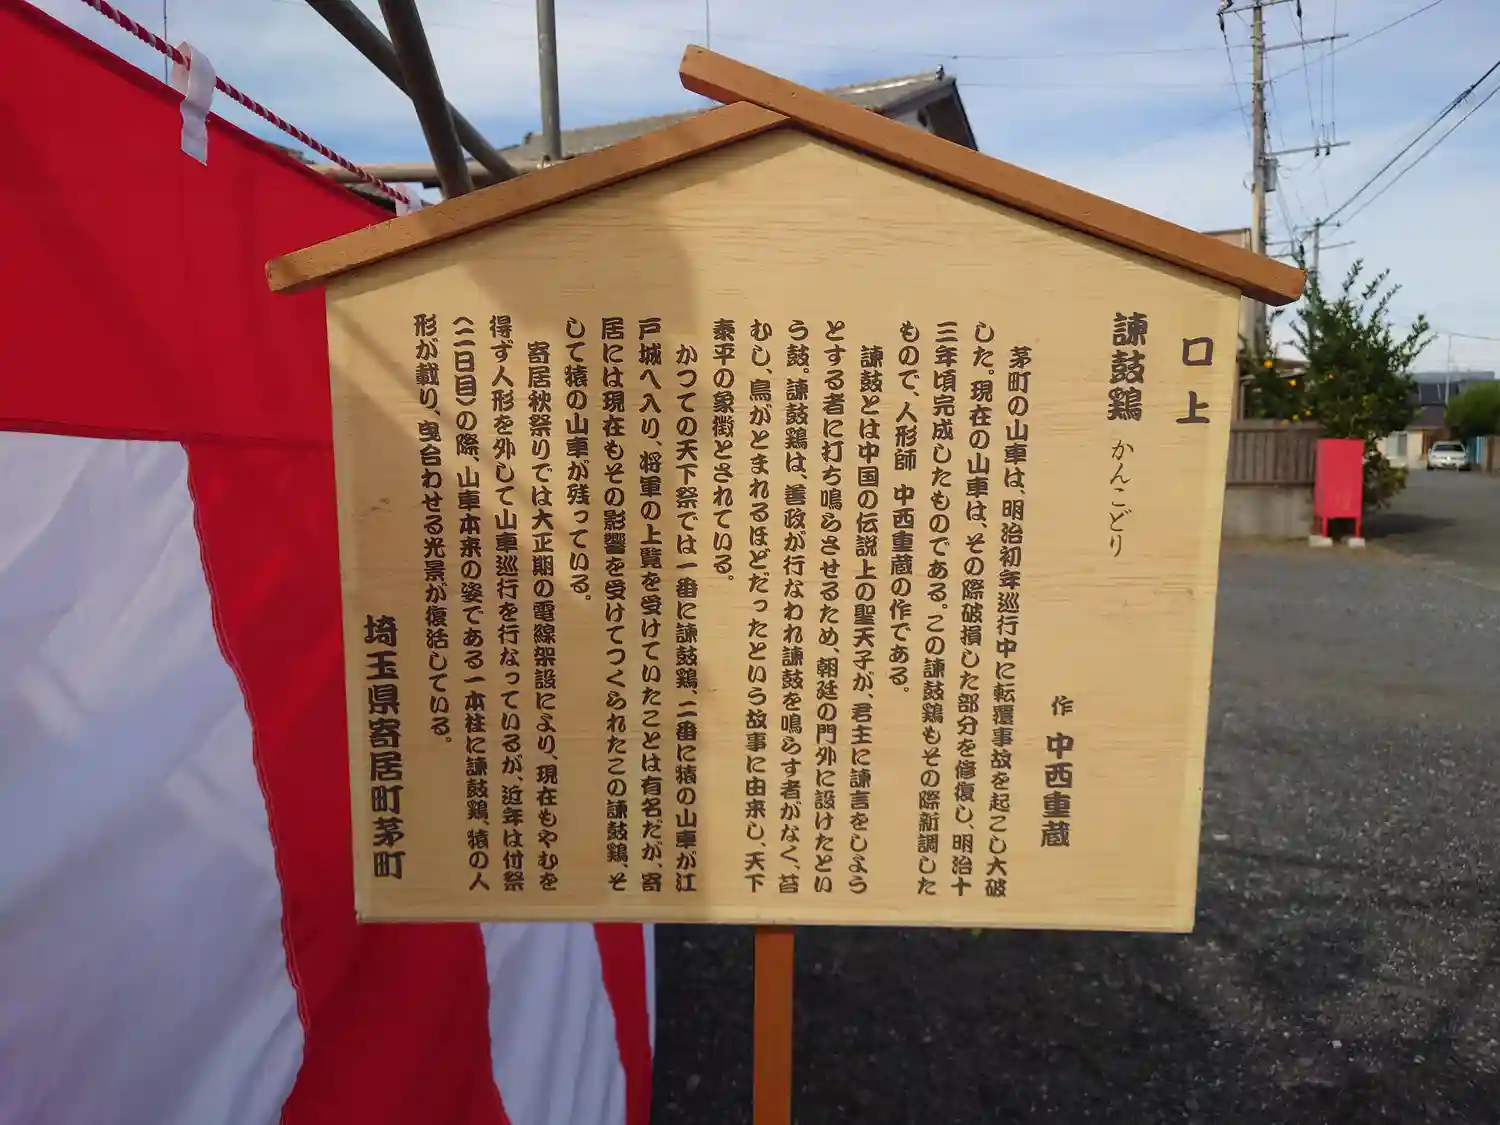 口上
諫鼓鶏 かんこどり
作 中西重蔵
茅町の山車は、明治初年巡行中に転覆事故を起こし大破
した。現在の山車は、その際破損した部分を修復し、明治十
三年頃完成したものである。この諫鼓鶏もその際新調した
もので、人形師 中西重蔵の作である。
諫鼓とは中国の伝説上の聖天子が、君主に諫言をしよう
とする者に打ち鳴らさせるため、朝廷の門外に設けたとい
う鼓。諫鼓鶏は、善政が行なわれ諫鼓を鳴らす者がなく、苔
むし、鳥がとまれるほどだったという故事に由来し、天下
泰平の象徴とされている。
かつての天下祭では一番に諫鼓鶏、二番に猿の山車が江
戸城へ入り、将軍の上覧を受けていたことは有名だが、寄
居には現在もその影響を受けてつくられたこの諫鼓鶏、そ
して猿の山車が残っている。
寄居秋祭りでは大正期の電線架設により、現在もやむを
得ず人形を外して山車巡行を行なっているが、近年は付祭
(二日目)の際、山車本来の姿である一本柱に諫鼓鶏、猿の人
形が載り、曳合わせる光景が復活している。
埼玉県寄居町茅町